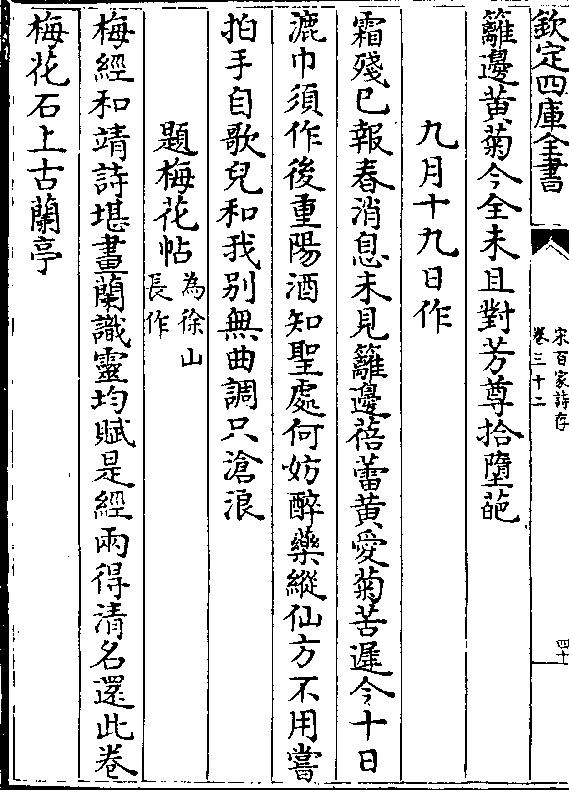 欽定四庫全書
宋百家詩存
卷三十二
四十
籬邊黄菊今全未且對芳尊拾墮葩
九月十九日作
霜殘已報春消息未見籬邊蓓蕾黄愛菊苦遲今十日
漉巾須作後重陽酒知聖處何妨醉藥縱仙方不用嘗
拍手自歌兒和我别無曲調只滄浪
題梅花帖為徐山
長作
梅經和靖詩堪畫蘭識靈均賦是經兩得清名還此卷
梅花石上古蘭亭